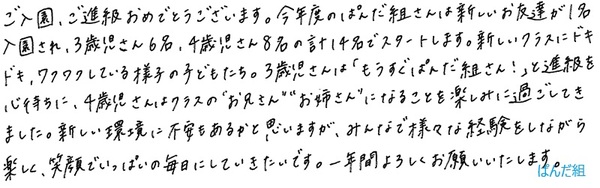 ご入園、ご進級おめでとうございます。今年度のぱんだ組さんは新しいお友達が1名
入園され、3歳児さん6名、4歳児さん8名の計14名でスタートします。新しいクラスにドキ
ドキ、ワクワクしている様子の子どもたち。3歳児さんは「もうすぐぱんだ組さん!」と進級を
心待ちに、4歳児さんはクラスの"お兄さん""お姉さん"になることを楽しみに過ごしてき
ました。新しい環境に不安もあるかと思いますが、みんなで様々な経験をしながら
楽しく、笑顔でいっぱいの毎日にしていきたいです。一年間よろしくお願いいたします。
ぱんだ組